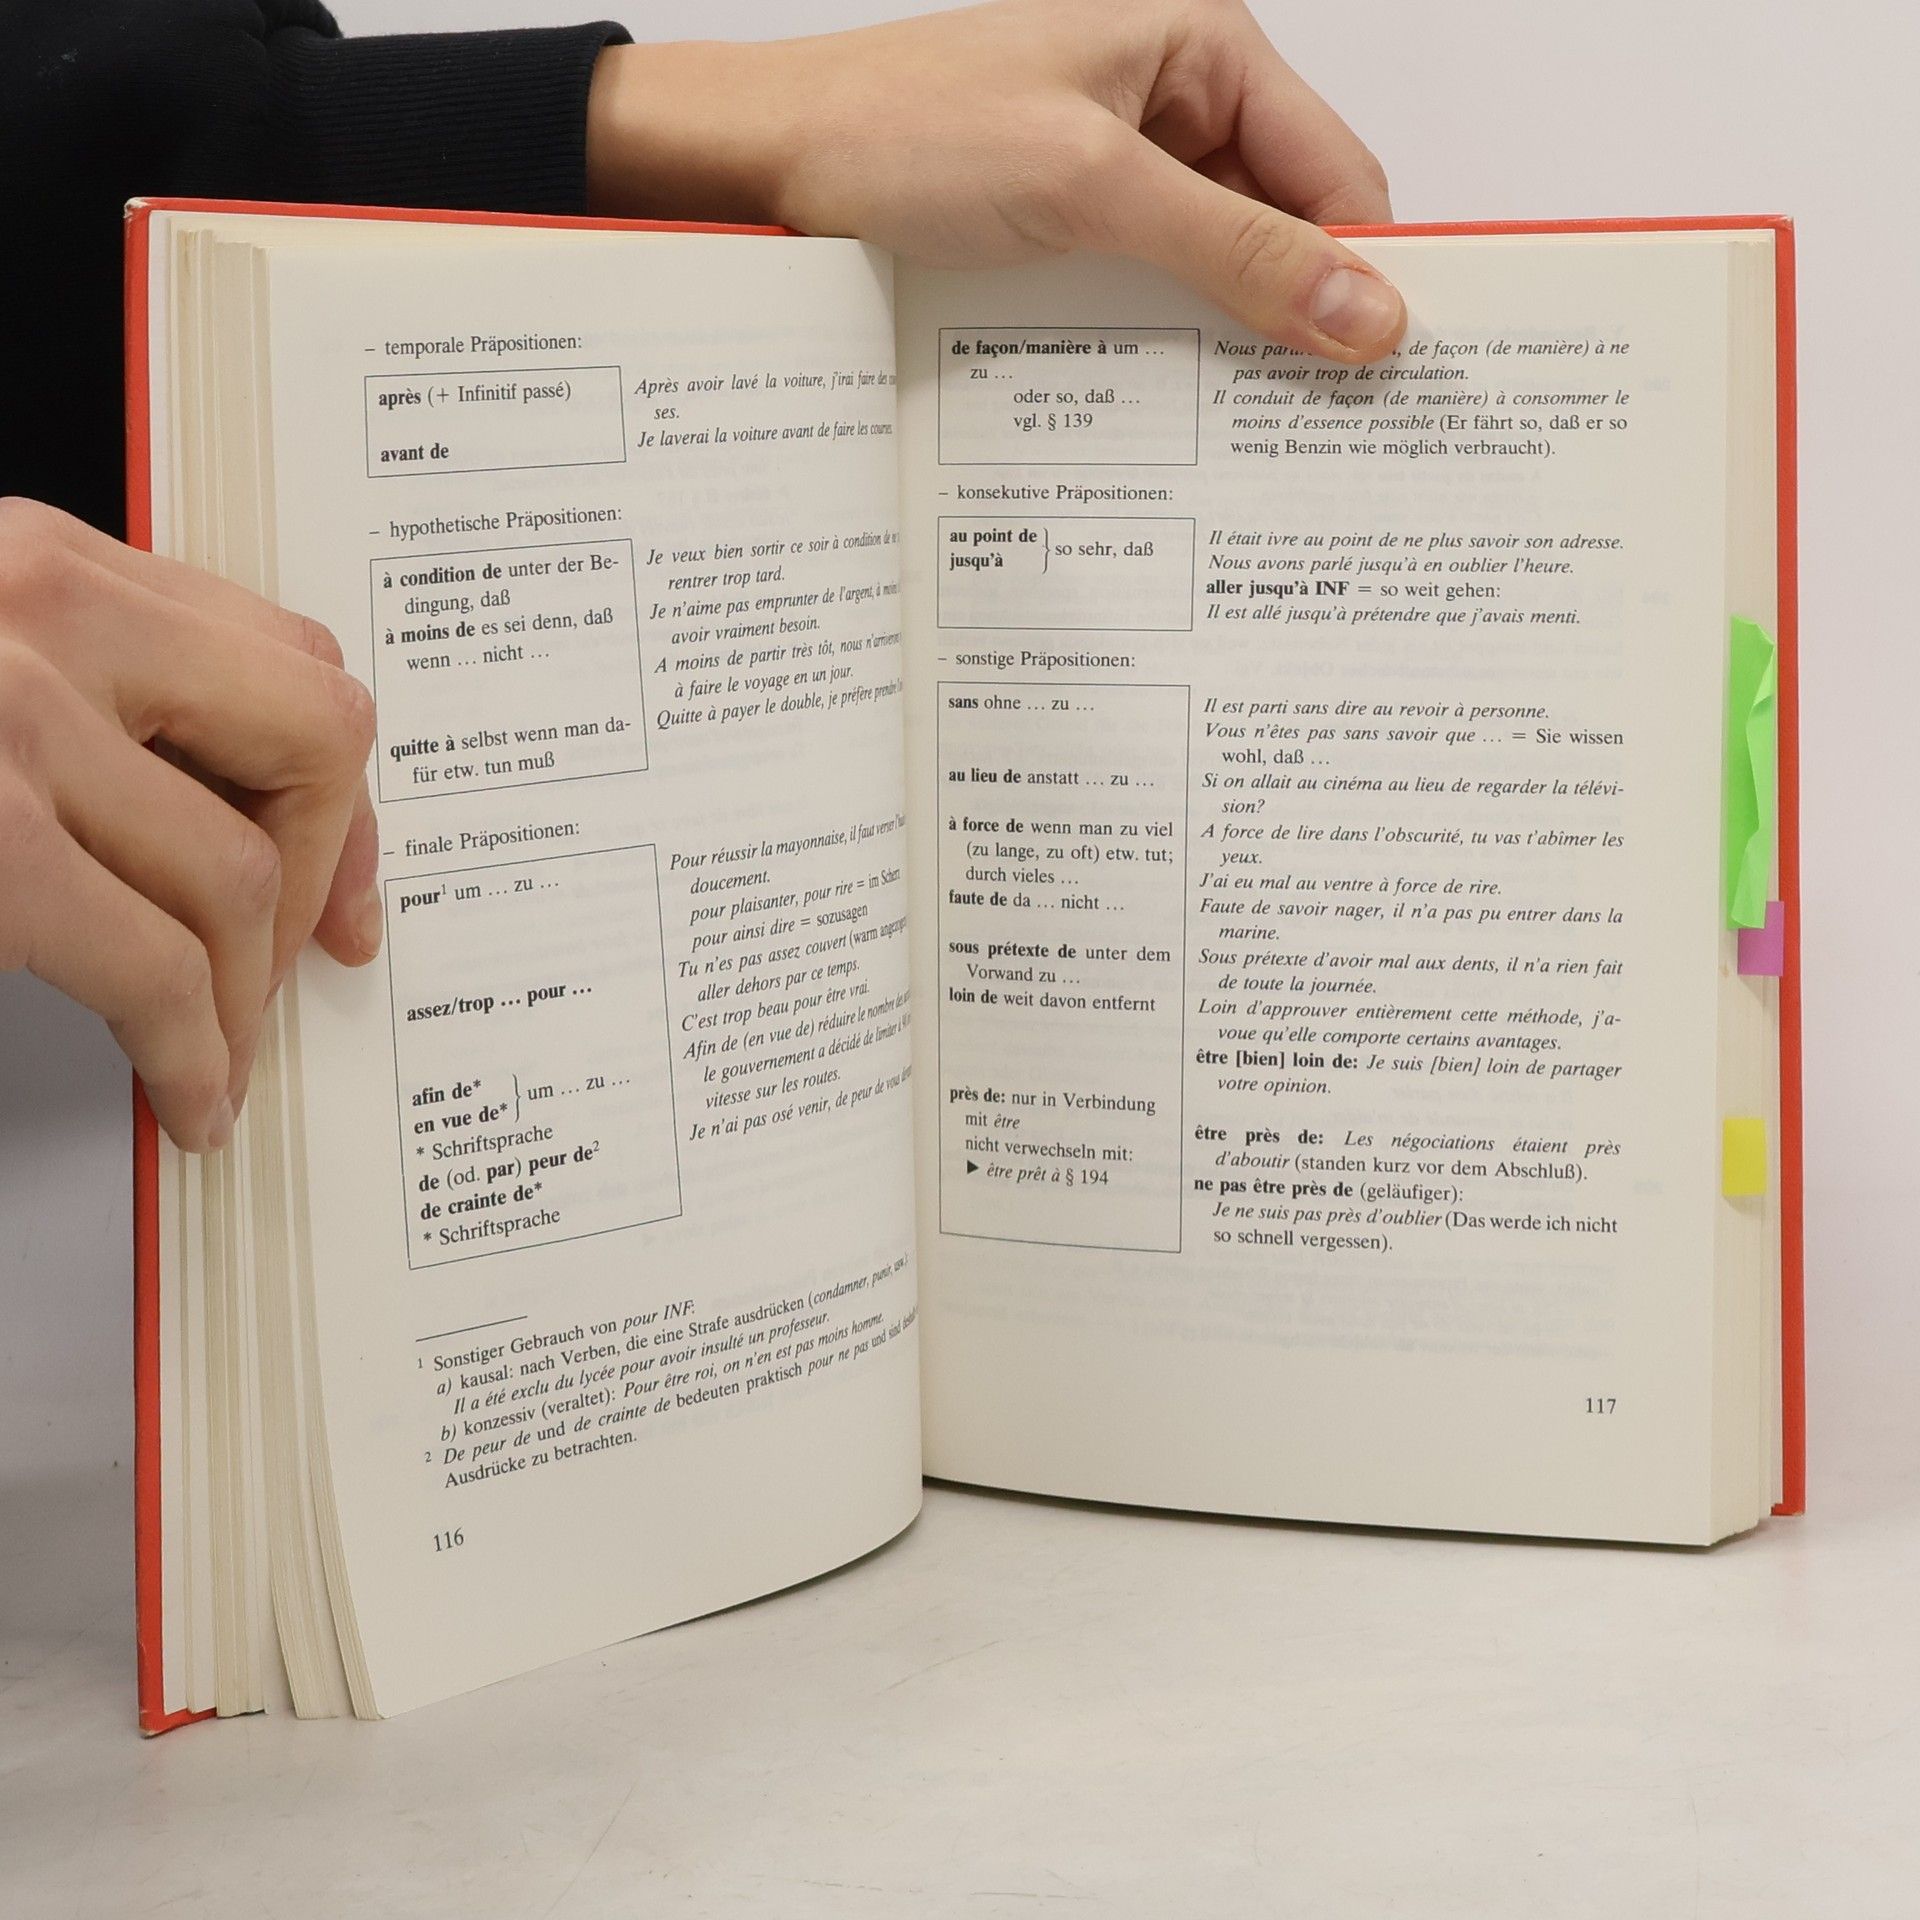 – temporale Präpositionen:
après (+ Infinitif passé)
avant de
Après avoir lavé la voiture, j'irai faire des
ses.
Je laverai la voiture avant de faire les courses.
– hypothetische Präpositionen:
à condition de unter der Be-
dingung, daß
à moins de es sei denn, daß
wenn ... nicht ...
quitte à selbst wenn man da-
für etw. tun muß
Je veux bien sortir ce soir à condition de
rentrer trop tard.
Je n'aime pas emprunter de l'argent, à moins
avoir vraiment besoin.
A moins de partir très tôt, nous n'arriverons
à faire le voyage en un jour.
Quitte à payer le double, je préfère prendre
– finale Präpositionen:
pour¹ um ... zu ...
assez/trop ... pour ...
afin de*
en vue de* } um ... zu ...
* Schriftsprache
de (od. par) peur de²
de crainte de*
* Schriftsprache
Pour réussir la mayonnaise, il faut verser
doucement.
pour plaisanter, pour rire = im Scherz
pour ainsi dire = sozusagen
Tu n'es pas assez couvert (warm
aller dehors par ce temps.
C'est trop beau pour être vrai.
Afin de (en vue de) réduire le nombre des
le gouvernement a décidé de limiter à
vitesse sur les routes.
Je n'ai pas osé venir, de peur de vous
¹ Sonstiger Gebrauch von pour INF:
a) kausal: nach Verben, die eine Strafe ausdrücken (condamner, punir, usw.):
Il a été exclu du lycée pour avoir insulté un professeur.
b) konzessiv (veraltet): Pour être roi, on n'en est pas moins homme.
² De peur de und de crainte de bedeuten praktisch pour ne pas und sind
Ausdrücke zu betrachten.
116
de façon/manière à um ...
zu ...
oder so, daß ...
vgl. § 139
Nous , de façon (de manière) à ne
pas avoir trop de circulation.
Il conduit de façon (de manière) à consommer le
moins d'essence possible (Er fährt so, daß er so
wenig Benzin wie möglich verbraucht).
– konsekutive Präpositionen:
au point de
jusqu'à } so sehr, daß
Il était ivre au point de ne plus savoir son adresse.
Nous avons parlé jusqu'à en oublier l'heure.
aller jusqu'à INF = so weit gehen:
Il est allé jusqu'à prétendre que j'avais menti.
– sonstige Präpositionen:
sans ohne ... zu ...
au lieu de anstatt ... zu ...
à force de wenn man zu viel
(zu lange, zu oft) etw. tut;
durch vieles ...
faute de da ... nicht ...
sous prétexte de unter dem
Vorwand zu ...
loin de weit davon entfernt
près de: nur in Verbindung
mit être
nicht verwechseln mit:
▶ être prêt à § 194
Il est parti sans dire au revoir à personne.
Vous n'êtes pas sans savoir que ... = Sie wissen
wohl, daß ...
Si on allait au cinéma au lieu de regarder la télévi-
sion?
A force de lire dans l'obscurité, tu vas t'abîmer les
yeux.
J'ai eu mal au ventre à force de rire.
Faute de savoir nager, il n'a pas pu entrer dans la
marine.
Sous prétexte d'avoir mal aux dents, il n'a rien fait
de toute la journée.
Loin d'approuver entièrement cette méthode, j'a-
voue qu'elle comporte certains avantages.
être [bien] loin de: Je suis [bien] loin de partager
votre opinion.
être près de: Les négociations étaient près
d'aboutir (standen kurz vor dem Abschluß).
ne pas être près de (geläufiger):
Je ne suis pas près d'oublier (Das werde ich nicht
so schnell vergessen).
117